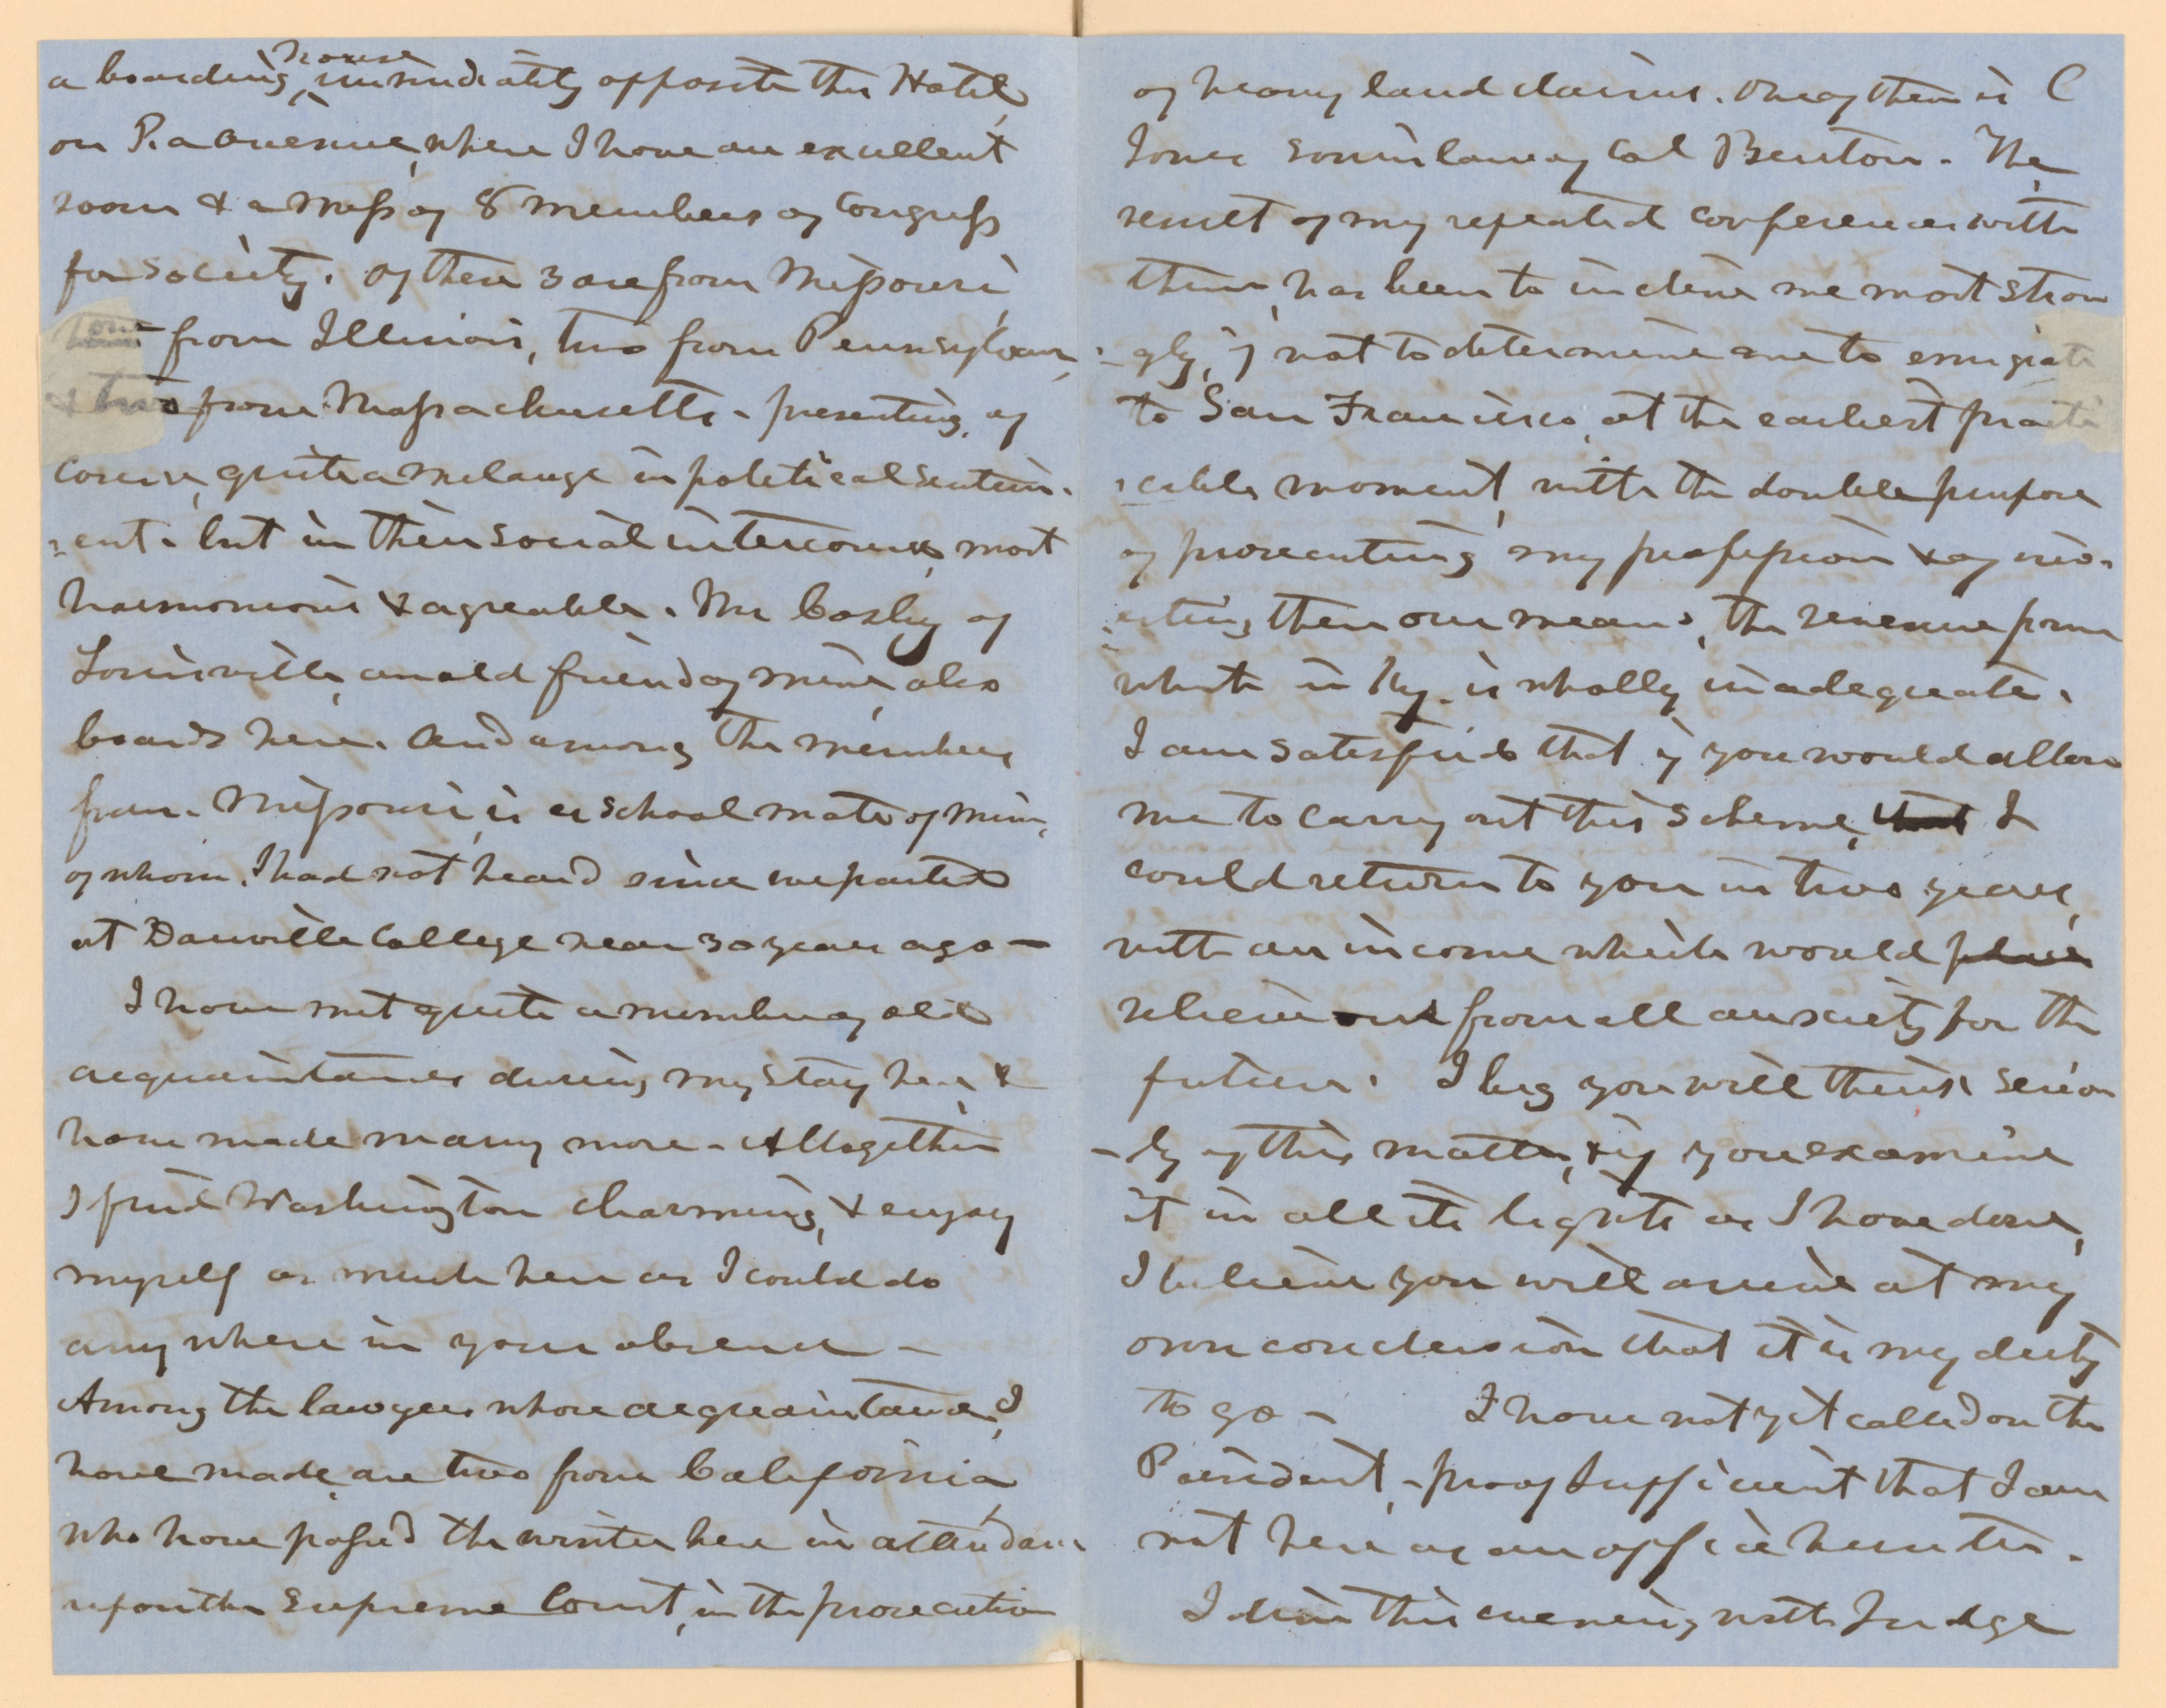 a boarding house immediately opposite this Hotel,
on Pa avenue, where I have an excellent
room & a mess of 8 members of Congress
for society. Of these 3 are from Missouri,
one from Illinois, two from Pennsylvan,
& two from Massachusetts - presenting, of
course, quite a melange in political sentim-
-ent - but in their social intercourse, most
harmonious & agreable. Mr Cosby of
Louisville, an old friend of mine, also
boards here. And among the members
from Missouri, is a school mate of mine,
of whom, I had not heard since we parted
at Danville College near 30 years ago -
I have met quite a number of old
acquaintances during my stay here, &
have made many more - Altogether
I find Washington charming, & enjoy
myself as much here as I could do
any where in your absence -
Among the lawyers whose acquaintance, I
have made, are two from California,
who have passed the winter here in attendance
upon the Supreme Court, in the prosecution
of heavy land claims. One of them is C
Jones son in law of Col Benton. The,
result of my repeated conferences with
them, has been to incline me most stron
-gly, if not to determine me to emigrate
to San Francisco, at the earliest practi
-cable moment, with the double purpose
of prosecuting my profession & of inv-
-esting there our means, the revenue from
which in Ky. is wholly inadequate.
I am satisfied that if you would allow
me to carry out this scheme, that I
could return to you in two years,
with an income which would place
relieve us from all anxiety for the
future. I beg you will think seriou
-ly of this matter, & if you examine
it in all its lights as I have done,
I believe you will arrive at my
own conclusion that it is my duty
to go - I have not yet called on the
President, - proof sufficient that I am
not here as an office hunter.
I dine this evening with Judge